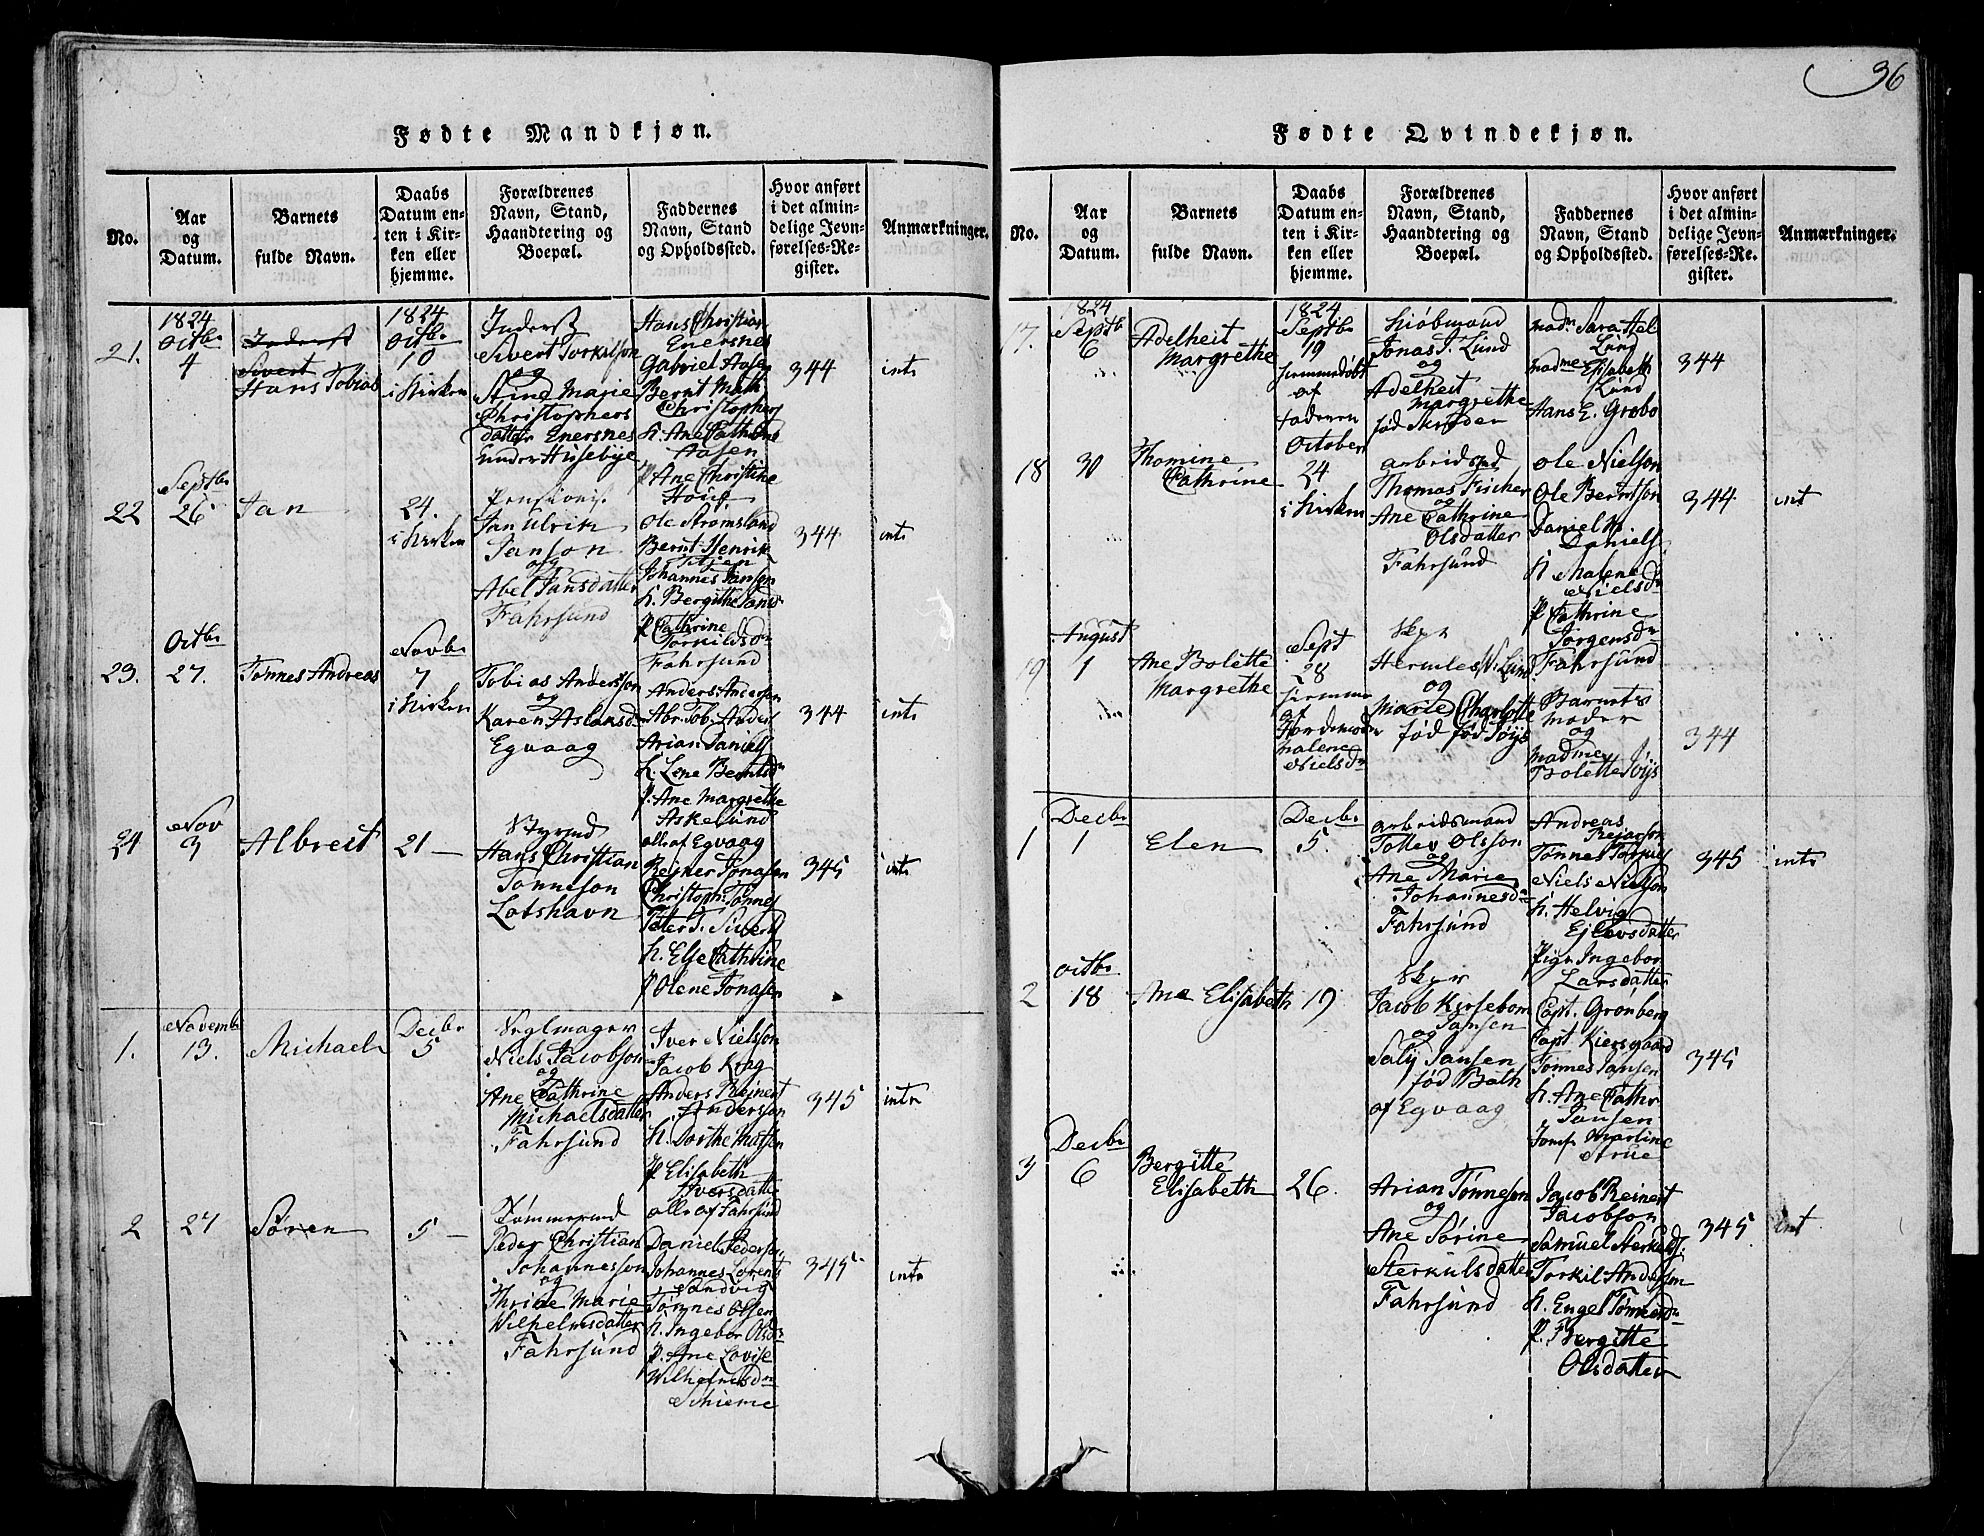 36
Fødte Mandkjøn.
No.
Aar
og
Datum.
Barnets
fulde Navn.
Daabs
Datum en-
ten i Kir-
ken eller
hjemme.
Forældrenes
Navn, Stand,
Haandtering og
Boepæl.
Faddernes
Navn, Stand
og Opholdssted.
Hvor anført
i det almin-
delige Jevn-
førelses-Re-
gister.
Anmærkninger.
21.
1824
Octbr
4
Sivert
Hans Tobias
1824
Octbr
10
i Kirken
Inderst
Sivert Torkilson
og
Stine Marie
Christophers
datter Enersnes
under Husebye
Hans Christian
Enersnes
Gabriel Aasen
Bernt Math
Christophers
K. Ane Cathrine
Aasen
P Ane Christine
344
int
22
Septbr
26
Jan
24.
i Kirken
Jan Ulrik
Janson
og
Abel Jansdatter
Fahrsund
Ole Stromsland
Bernt Henrik
Johannes Janson
K. Bergithe Jans
P Cathrine
Torkildsdr
Fahrsund
344
int
23.
Octbr
27.
Tønnes Andreas
Novbr
7
i Kirken
Tobias Andersson
og
Karen Aslaksd
Egvaag
Anders Andersen
Abr. Tob. Anders
Arian Daniels
K. Lene Berntsdr
P. Ane Margrethe
Askelund
alle af Egvaag
344
int
24
Nov
3
Albreit
21 —
Styrmd
Hans Christian
Tønneson
Lotshavn
Reiner Jonasen
Christoph. Tønnes
Peter T. Sivert
K. Else Cathrine
P Olene Jonasen
345
int
1.
Novembr
13.
Michael
Decbr
5
Seglmager
Niels Jacobson
og
Ane Cathrine
Michaelsdatter
Fahrsund
Iver Nielsson
Jacob Krog
Anders Reinert
Anderson
K. Dorthe
P Elisabeth
Iversdatter
alle af Fahrsund
345
int
2
27
Søren
5 —
Tømmermd
Peder Christian
Johannesson
og
Thrine Marie
Wilhelmsdatter
Fahrsund
Daniel Pederson
Johannes Lorents
Sandvig
Tønnes Olsen
K. Ingebor Olsdr
P. Ane Lovise
Wilhelmsdr
345
int
Fødte Qvindekjøn.
No.
Aar
og
Datum.
Barnets
fulde Navn.
Daabs
Datum en-
ten i Kir-
ken eller
hjemme.
Forældrenes
Navn, Stand,
Haandtering og
Boepæl.
Faddernes
Navn, Stand
og Opholdssted.
Hvor anført
i det almin-
delige Jevn-
førelses-Re-
gister.
Anmærkninger.
17.
1824
Septbr
6
Adelheit
Margrethe
1824
Septbr
19
hjemmedøbt
af
Faderen
Kiøbmand
Jonas I. Lund
og
Adelheit
Margrethe
fød
Madm Sara Hel
Lund
Madme Elisabeth
Lund
Hans E. Grøbo
344
18
30
Thomine
Cathrine
October
24
i Kirken
arbeidsmd
Thomas Fischer
og
Ane Cathrine
Olsdatter
Fahrsund
Ole Nielson
Ole Berntson
Daniel
Daniels
K Malene
Nielsdr
P Cathrine
Jørgensdr
Fahrsund
344
int
19
August
1
Ane Bolette
Margrethe
Sept
28
hjemme
af
Jordemoder
Malene
Nielsdr
Skpr
Hercules W. Lund
og
Marie Charlotte
fød fød Jøys
Barnets
Moder
og
Madme
Bolette Jøys
344
1
Decbr
1
Elen
Decbr
5.
arbeidsmand
Tollev Olsson
og
Ane Marie
Johannesdr
Fahrsund
Andreas
Rejarson
Tønnes
Niels Nielson
K. Helvig
Ejlovsdatter
Pige Ingebor
Larsdatter
345
int
2
Octbr
18
Ane Elisabeth
19
Skpr
Jacob Kirsebom
Jansen
og
Saly Jansen
fød Bøth
af Egvaag
Capt. Grønberg
Capt Kiersgaard
Tønnes Jansen
K. Ane Cathr
Jansen
Jomfr Martine
Strue
345
3
Decbr
6
Bergitte
Elisabeth
26.
Arian Tønneson
og
Ane Sørine
Sterkulsdatter
Fahrsund
Jacob Reinert
Jacobson
Samuel
Torkil Anderson
K. Engel Tønnesdr
P. Bergitte
Olsdatter
345
int